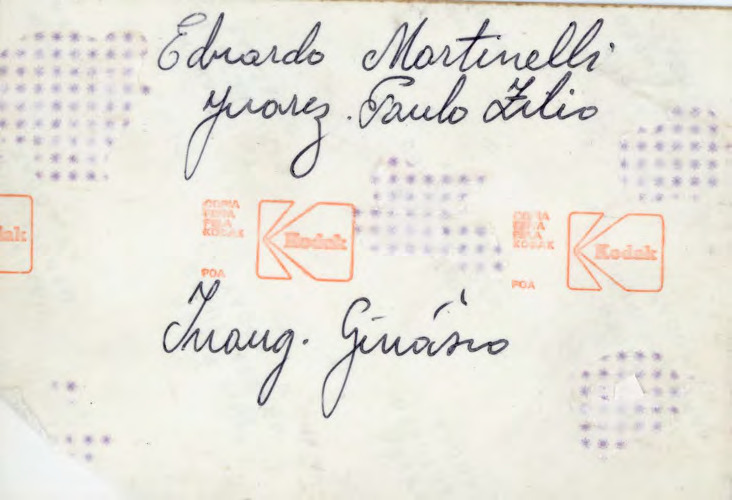 Eduardo Martinelli
Juarez. Paulo Zilio
CÓPIA
FEITA
PELA
KODAK
POA
Kodak
CÓPIA
FEITA
PELA
KODAK
POA
Kodak
Inaug. Ginásio